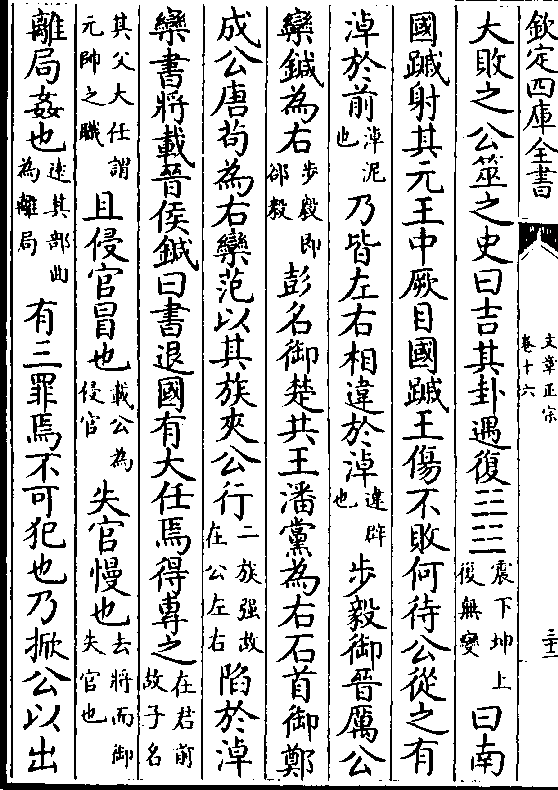 欽定四庫全書
文章正宗
卷十六
三十一
大敗之公筮之史曰吉其卦遇復☷☳震下坤上復無變曰南
國䠞射其元王中厥目國䠞王傷不敗何待公從之有
淖於前淖泥也乃皆左右相違於淖違辟也步毅御晉厲公
欒鍼為右步毅即郤毅彭名御楚共王潘黨為右石首御鄭
成公唐茍為右欒范以其族夾公行二族强故在公左右陷於淖
欒書將載晉侯鍼曰書退國有大任焉得專之在君前故子名
其父大任謂元帥之職且侵官冒也載公為侵官失官慢也去將而御失官也
離局姦也逺其部曲為離局有三罪焉不可犯也乃掀公以出